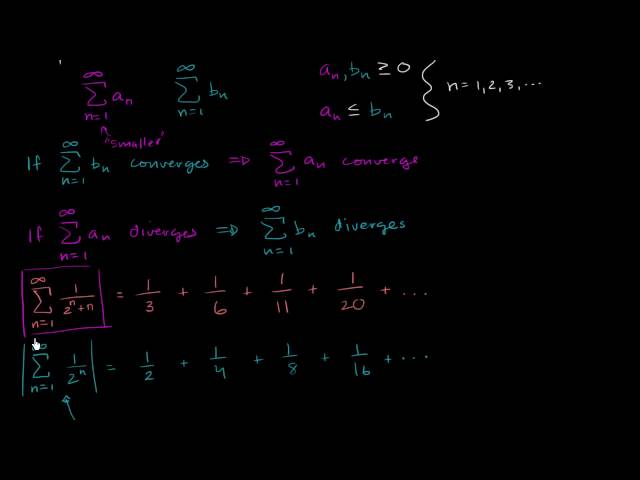 ∞ ∑ n=1 aₙ   ∞ ∑ n=1 bₙ   aₙ, bₙ ≥ 0 } n = 1, 2, 3, ...
"smaller"   aₙ ≤ bₙ
If ∞ ∑ n=1 bₙ converges ⇒ ∞ ∑ n=1 aₙ converge
If ∞ ∑ n=1 aₙ diverges ⇒ ∞ ∑ n=1 bₙ diverges
∞ ∑ n=1 1/(2ⁿ+n) = 1/3 + 1/6 + 1/11 + 1/20 + ...
|∞ ∑ n=1 1/2ⁿ| = 1/2 + 1/4 + 1/8 + 1/16 + ...